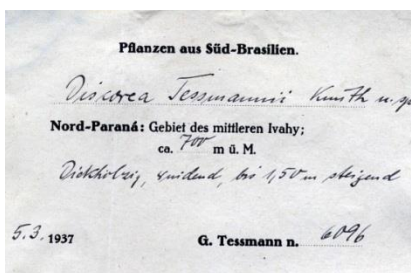 Pflanzen aus Süd-Brasilien.
Discorea Tessmannii Knuth n. sp
Nord-Paraná: Gebiet des mittleren Ivahy;
ca. 700 m ü. M.
bis 1,50 m steigend
5.3. 1937 G. Tessmann n. 6096